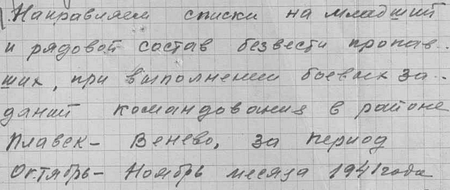 Направляем списки на младший
и рядовой состав безвести пропав-
ших, при выполнении боевых за-
даний командования в районе
Плавск - Венево, за период
Октябрь - Ноябрь месяца 1941 года